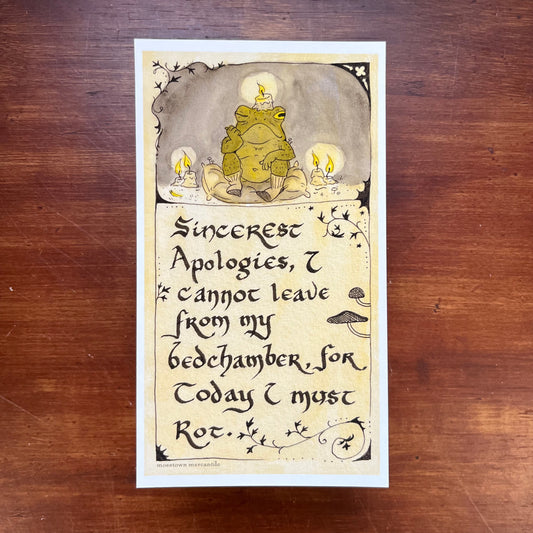 Sincerest
Apologies, I
cannot leave
from my
bedchamber, for
Today I must
Rot.
mosstown mercantile